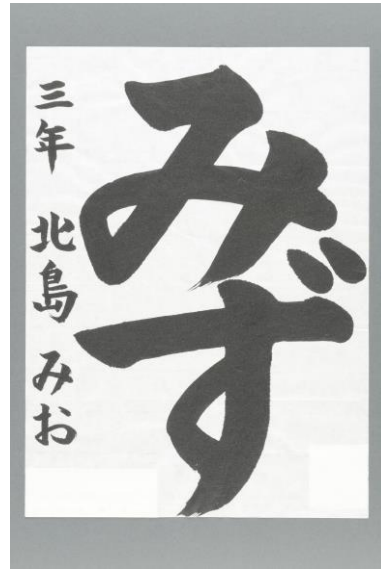 みず
三年 北島 みお